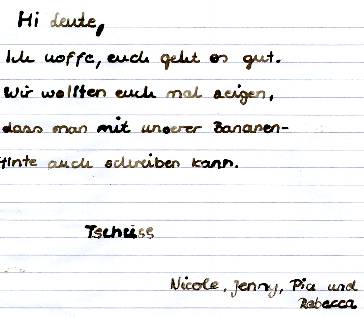 Hi Leute,
Ich hoffe, euch geht es gut.
Wir wollten euch mal zeigen,
dass man mit unserer Bananen-
tinte auch schreiben kann.
Tschüss
Nicole, Jenny, Pia und
Rebecca